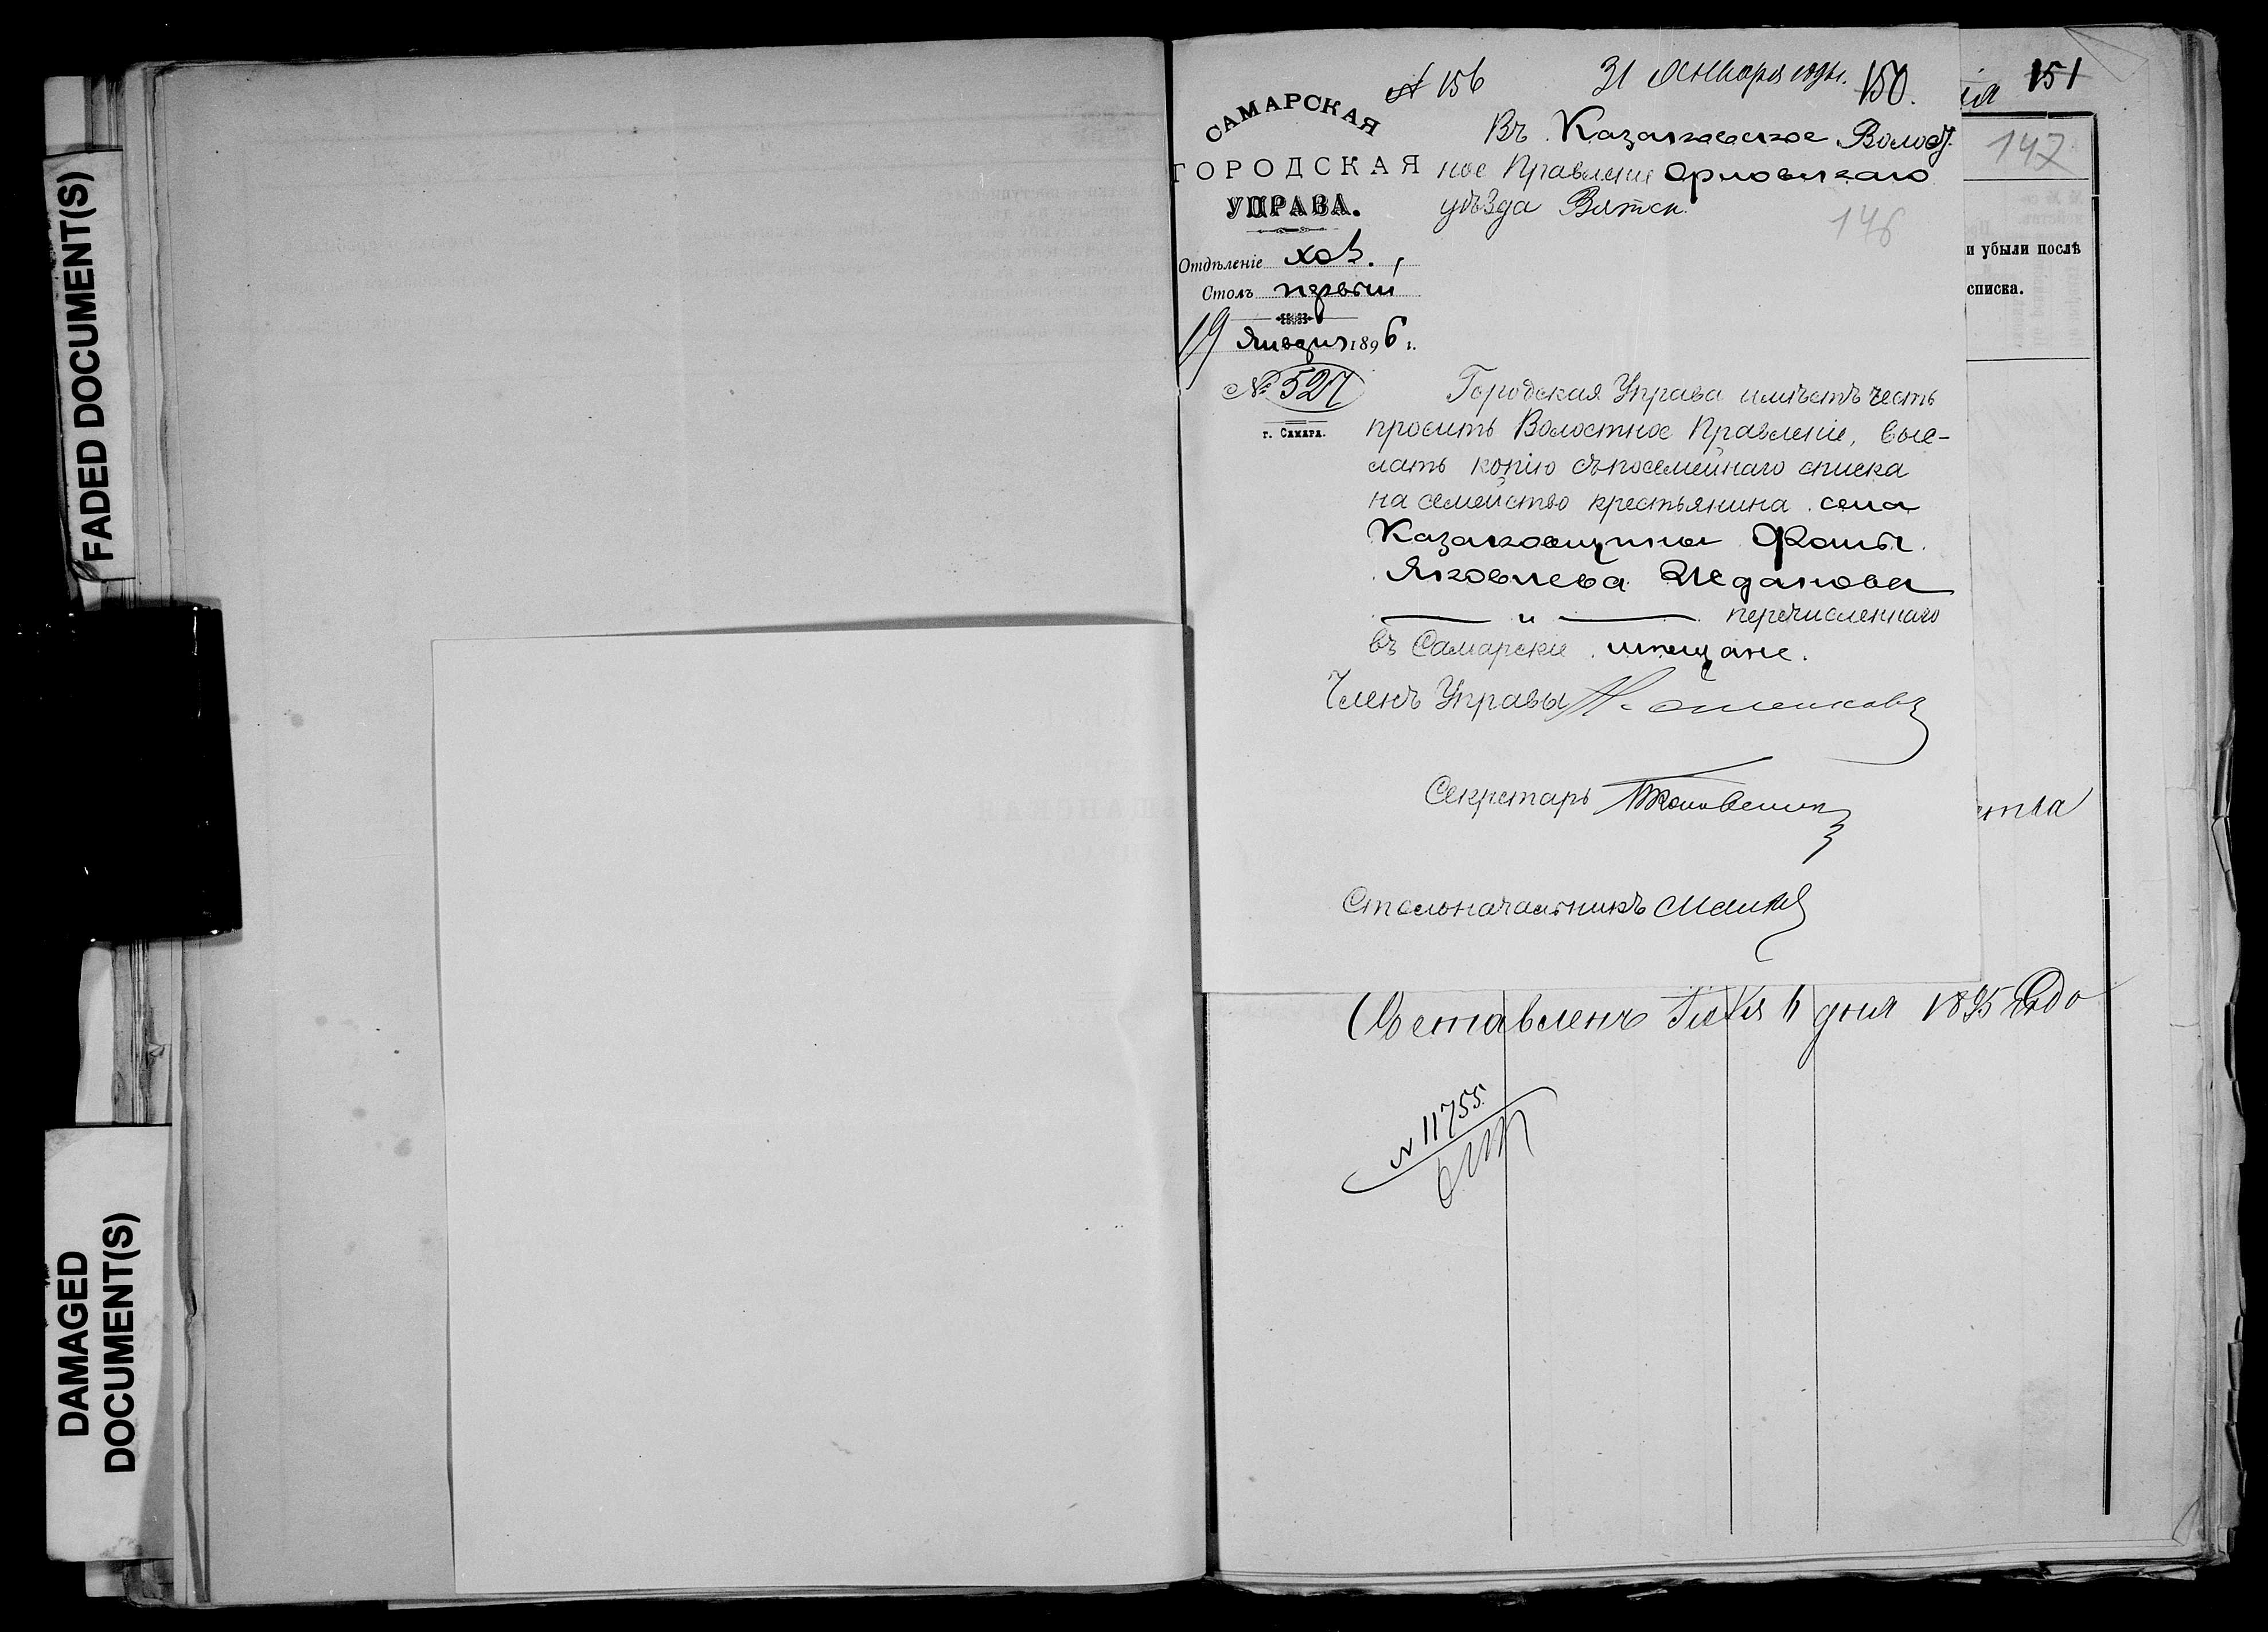 FADED DOCUMENT(S)
DAMAGED
DOCUMENT(S)
№ 156
31 Января 1896 г.
150.
151
САМАРСКАЯ
ГОРОДСКАЯ
УПРАВА.
Отдѣленіе хоз.
Столъ первый
19 Января 1896 г.
№ 527
г. Самара.
Въ Казаковское Волост
ное Правленіе Орловскаго
уѣзда Вятск.
146
147
и убыли послѣ
списка.
Городская Управа имѣетъ честь
просить Волостное Правленіе, вые-
лать копію съ посемейнаго списка
на семейство крестьянина села
Казаковщины Фомы
Яковлева
и перечисленнаго
въ Самарскіе мѣщане.
Членъ Управы
Секретарь
Столоначальникъ
ства
Составленъ 11 дня 1895 года
№ 11755